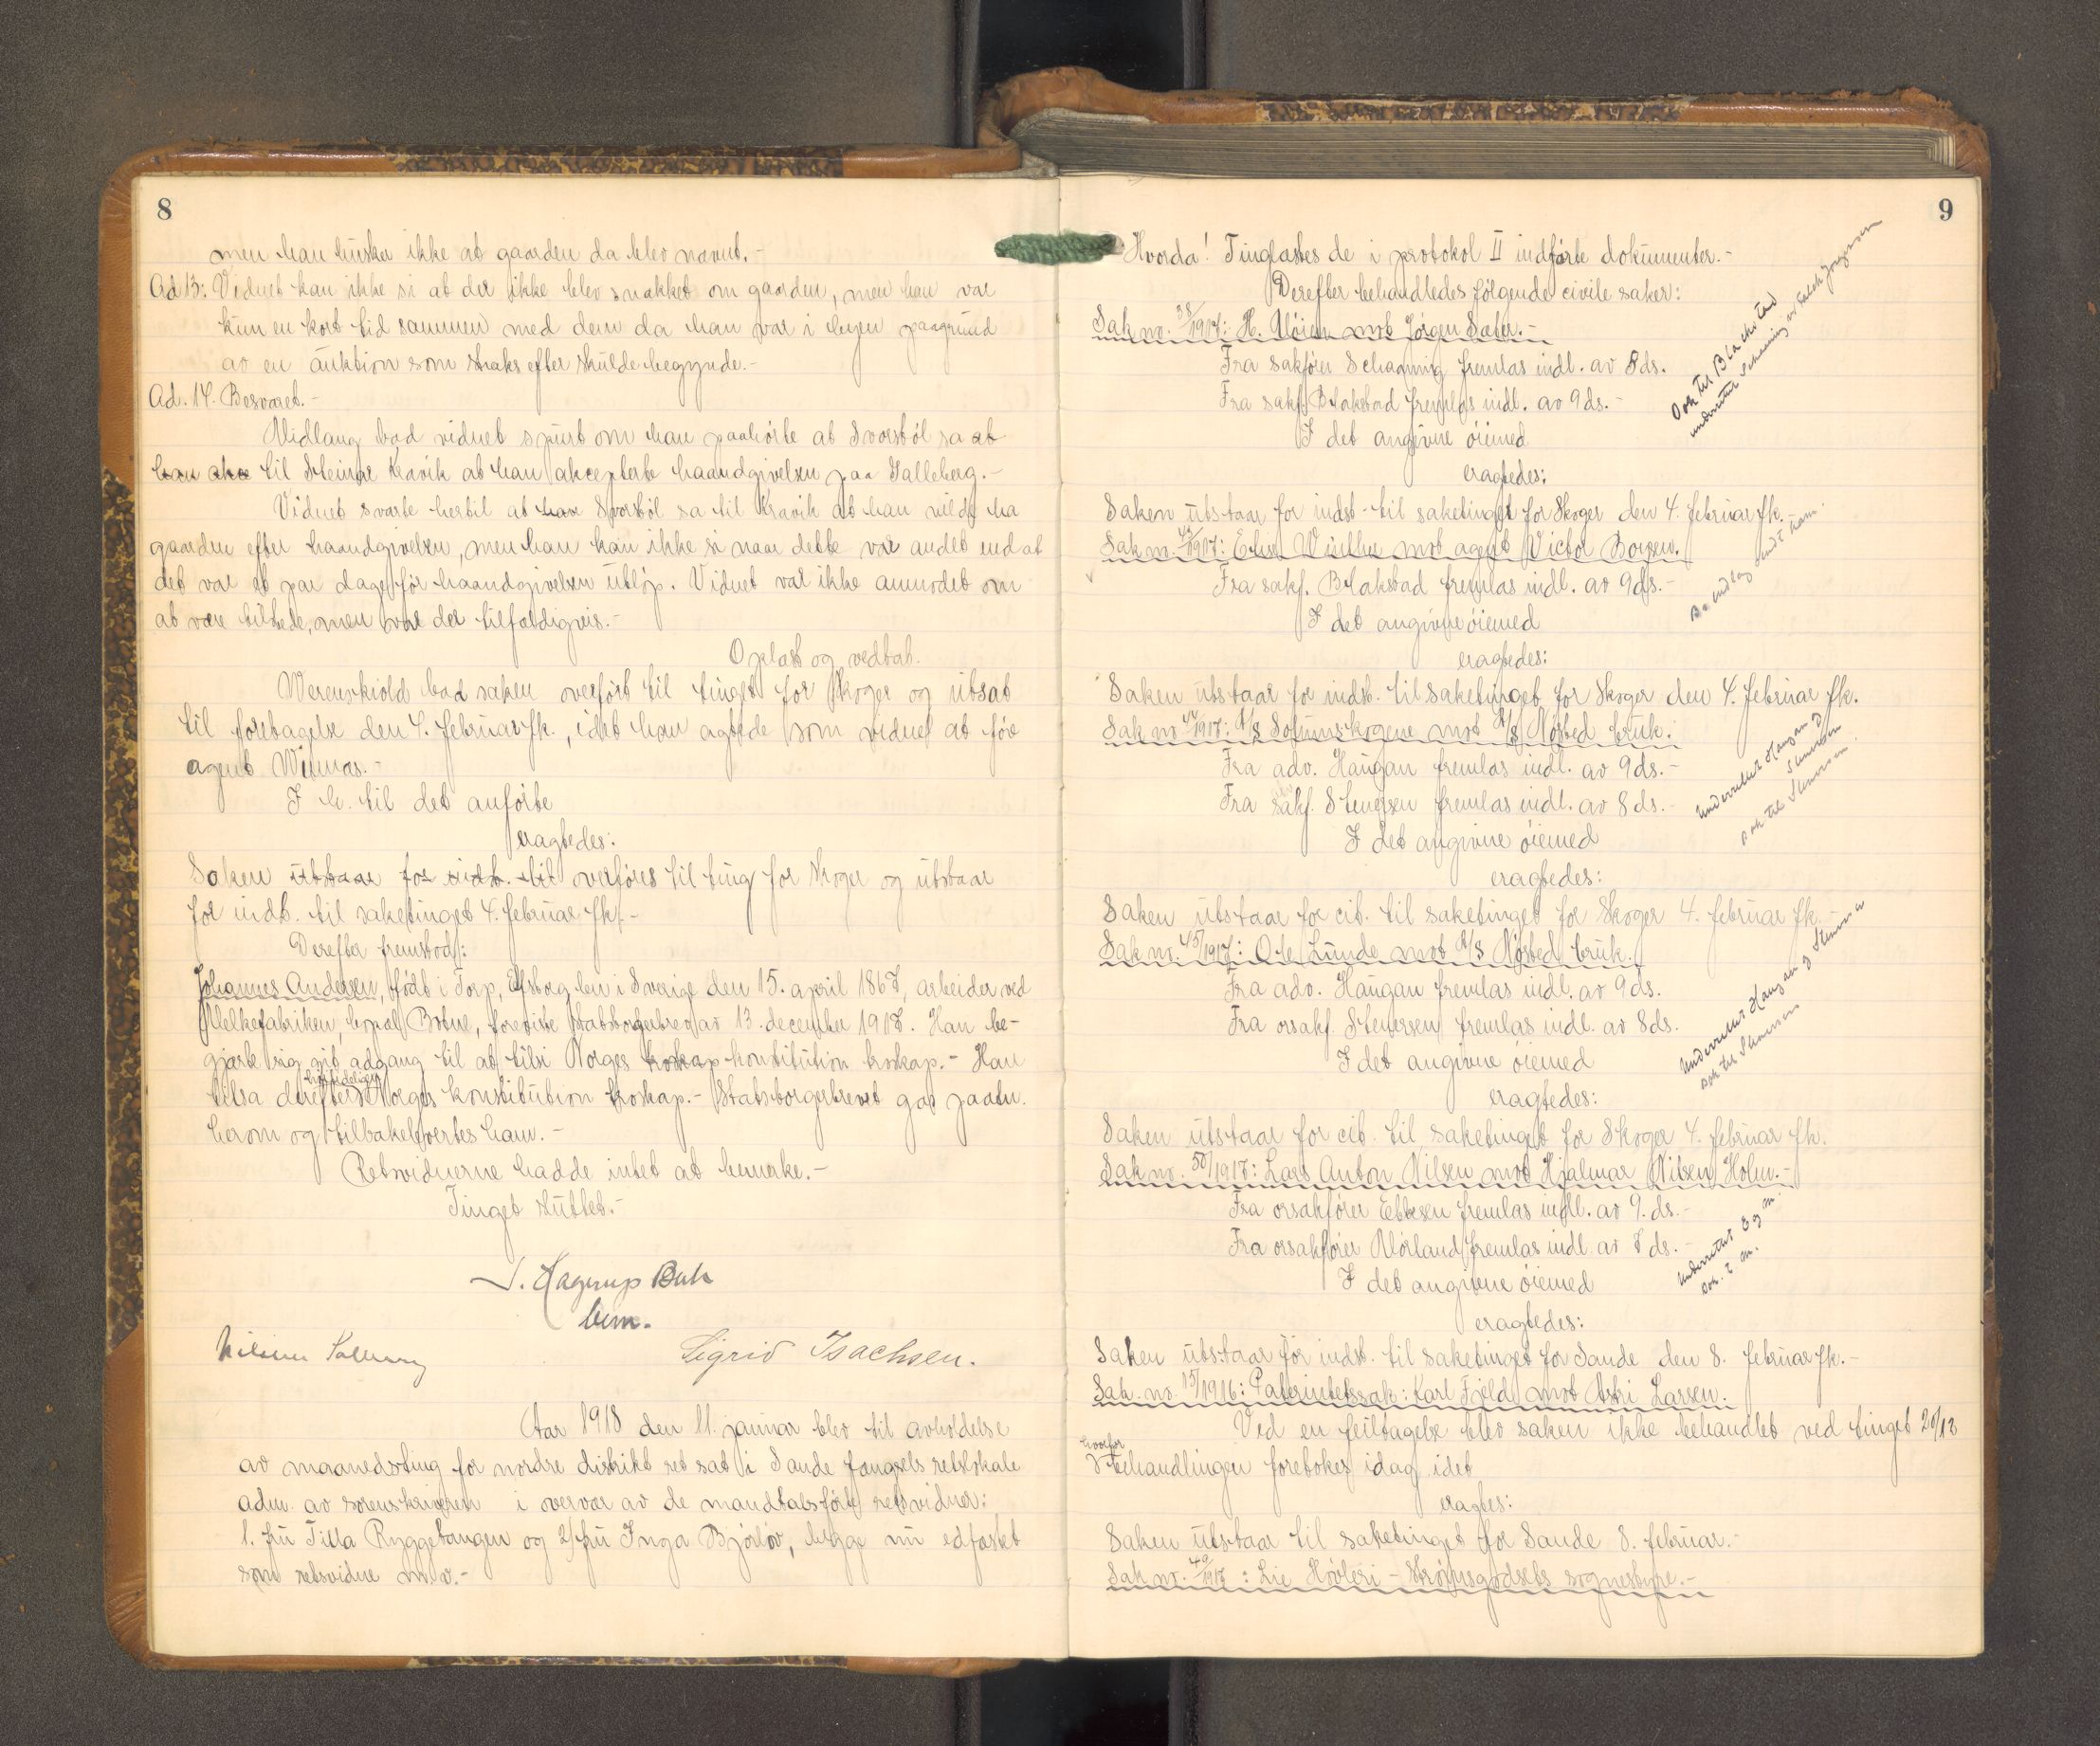 8
men han husker ikke at gaarden da blev nævnt.-
Ad 13: Vidnet kan ikke si at der ikke blev snakket om gaarden, men han var
kun en kort tid sammen med dem da han var i byen paagrund
av en auktion som straks efter skulde begynde.-
Ad. 14. Besvaret.-
Vidlang bad vidnet spurt om han paahørte at Svorstøl sa at
han akce til Steinar Kravik at han akcepterte haandgivelsen paa Salleberg.-
Vidnet svarte hertil at han Svorstøl sa til Kravik at han vilde ha
gaarden efter haandgivelsen, men han kan ikke si naar dette var andet end at
det var et par dage før haandgivelsen utløp. Vidnet var ikke anmodet om
at være tilstede, men var der tilfældigvis.-
Oplæst og vedtat.
Werenskiold bad saken overført til tinget for Skoger og utsat
til foretagelse den 4. februar fk., idet han agtede som vidne at føre
agent
I h. til det anførte
eragtedes:
Saken utstaar for indst. til overføres til ting for Skoger og utstaar
for indst. til saketinget 4. februar fk.-
Derefter fremstod:
Johannes Andersen, født i Torp, Elfsborg len i Sverige den 15. april 1867, arbeider ved
Melkefabriken, bopæl Botne, foreviste statsborgerbrev av 13. december 1917. Han be-
gjærte sig git adgang til at tilsi Norges troskap konstitution troskap.- Han
høitidelig
tilsa derefter Norges konstitution troskap.- Statsborgerbrevet gas paatn.
herom og tilbakelevertes ham.-
Retsvidnerne hadde intet at bemerke.-
Tinget sluttet.-
J. Hagerup Bull
bem.
Sigrid Isachsen.
Aar 1918 den 11. januar blev til avholdelse
av maanedsting for nordre distrikt ret sat i Sande fængsels retslokale
adm. av sorenskriveren i overvær av de mandtalsførte retsvidner:
1. fru Tilla Ryggetangen og 2/ fru Inga Bjørløv, begge nu edfæstet
som retsvidne m.v.-
9
Hvorda! Tinglæstes de i protokol II indførte dokumenter.-
Derefter behandledes følgende civile saker:
Sak no. 38/1917: H. Moien mot Jørgen Sæter.-
Fra sakfører Schanning fremlas indl. av 8 ds.
Fra sakf. Blakstad fremlas indl. av 9 ds.-
I det angivne øiemed
eragtedes:
Saken utstaar for indst. til saketinget for Skoger den 4. februar fk.-
Sak nr. 43/1917: Elise Müller mot agent Victor Borgen.
Fra sakf. Blakstad fremlas indl. av 9 ds.-
I det angivne øiemed
eragtedes:
Saken utstaar for indst. til saketinget for Skoger den 4. februar fk.
Sak no 44/1917: A/S Solumskogene mot A/S Nøsted bruk.
Fra adv. Haugan fremlas indl. av 9 ds.-
Fra sakf. Stenersen fremlas indl. av 8 ds.-
I det angivne øiemed
eragtedes:
Saken utstaar for cit. til saketinget for Skoger 4. februar fk.-
Sak nr. 45/1917: Ole Lunde mot A/S Nøsted bruk.
Fra adv. Haugan fremlas indl. av 9 ds.
Fra orsakf. Stenersen fremlas indl. av 8 ds.
I det angivne øiemed
eragtedes:
Saken utstaar for cit. til saketinget for Skoger 4. februar fk.
Sak no. 50/1917: Lars Anton Nilsen mot Hjalmar Nilsen Holm.-
Fra orsakfører Ebbesen fremlas indl. av 9. ds.-
Fra orsakfører Mørland fremlas indl. av 8 ds.-
I det angivne øiemed
eragtedes:
Saken utstaar for indst. til saketinget for Sande den 8. februar fk.-
Sak. no. 15/1916: Paternitetssak: Karl Fjeld mot Astri Larsen.
Ved en feiltagelse blev saken ikke behandlet ved tinget 20/12
hvorfor
behandlingen foretokes idag idet
eragtes:
Saken utstaar til saketinget for Sande 8. februar.-
Sak nr. 49/1917: Lie Høvleri - Strømsgodsets sognestyre.-